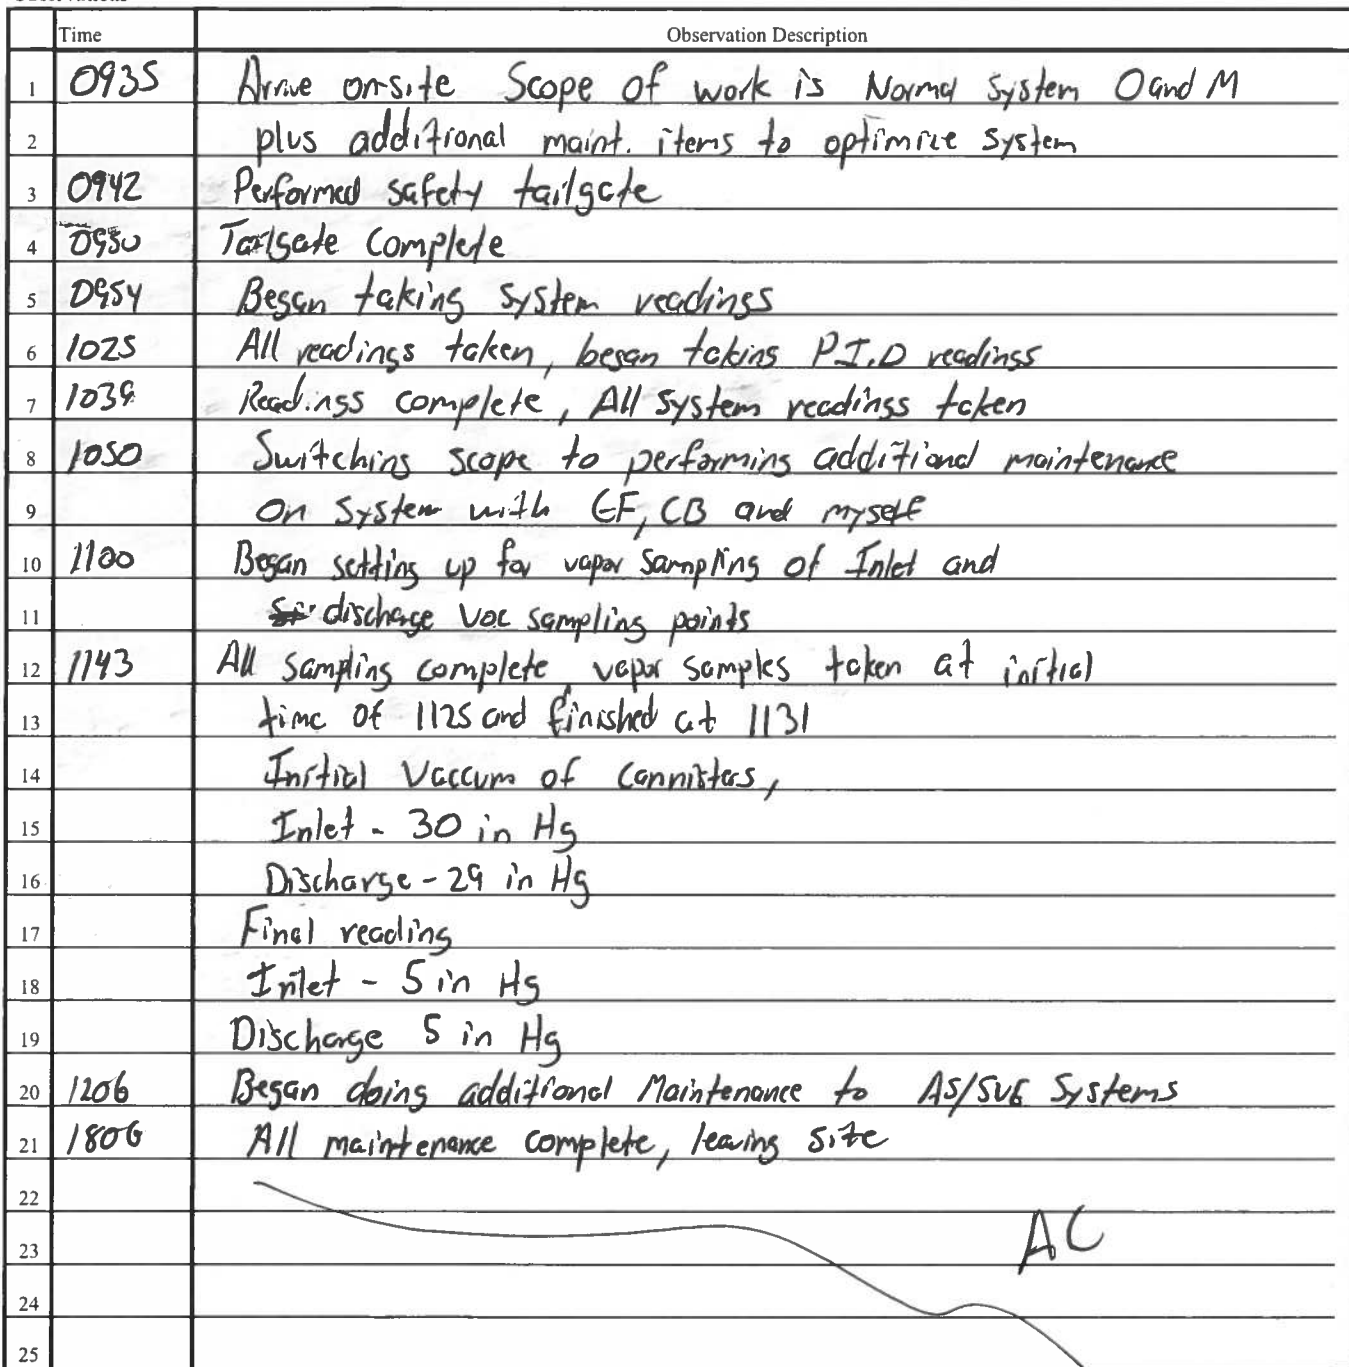 Time Observation Description
1 0935 Arrive onsite Scope of work is Normal System O and M
2 plus additional maint. items to optimize system
3 0942 Performed safety tailgate
4 0950 Tailgate Complete
5 0954 Began taking system readings
6 1025 All readings taken, began taking P.I.D readings
7 1039 Readings complete, All system readings taken
8 1050 Switching scope to performing additional maintenance
9 on system with GF, CB and myself
10 1100 Began setting up for vapor sampling of Inlet and
11 discharge VOC sampling points
12 1143 All sampling complete, vapor samples taken at initial
13 time of 1125 and finished at 1131
14 Initial Vaccum of Cannisters,
15 Inlet - 30 in Hg
16 Discharge - 29 in Hg
17 Final reading
18 Inlet - 5 in Hg
19 Discharge 5 in Hg
20 1206 Began doing additional Maintenance to AS/SVE Systems
21 1806 All maintenance complete, leaving site
22
23 AC
24
25